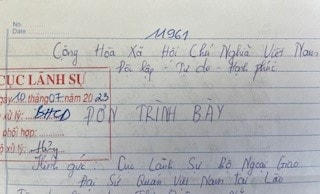 No.
Date
11961
Cộng Hòa Xã Hội Chủ Nghĩa Việt Nam
Độc lập - Tự do - Hạnh phúc
CỤC LÃNH SỰ
gày 10 tháng 07 năm 2023
xử lý: BHCD
ĐƠN TRÌNH BÀY
phối hợp:
xử lý:
Kính gửi: Cục Lãnh Sự Bộ Ngoại Giao
Đại Sứ Quán Việt Nam tại Lào